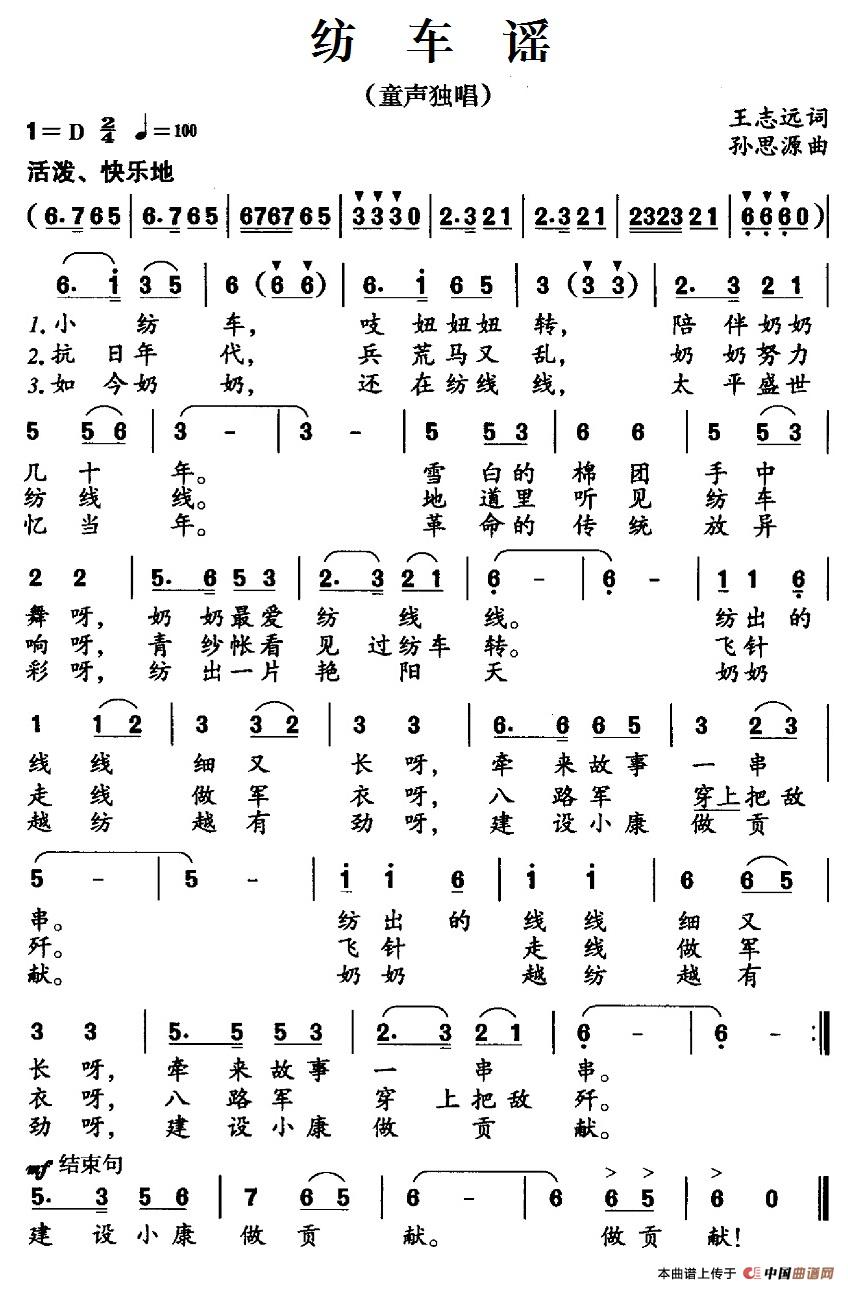 纺 车 谣
（童声独唱）
1=D 2/4 ♩=100
王志远词
孙思源曲
活泼、快乐地
( 6.765 | 6.765 | 676765 | 3330 | 2.321 | 2.321 | 232321 | 6660 ) |
6. i 3 5 | 6 ( 6 6 ) | 6. i 6 5 | 3 ( 3 3 ) | 2. 3 2 1 |
1.小 纺 车， 吱 妞妞妞 转， 陪 伴奶奶
2.抗 日年 代， 兵 荒马又 乱， 奶 奶努力
3.如 今奶 奶， 还 在纺线 线， 太 平盛世
5 5 6 | 3 - | 3 - | 5 5 3 | 6 6 | 5 5 3 |
几 十 年。 雪 白的 棉 团 手 中
纺 线 线。 地 道里 听 见 纺 车
忆 当 年。 革 命的 传 统 放 异
2 2 | 5. 6 5 3 | 2. 3 2 1 | 6 - | 6 - | 1 1 6 |
舞 呀， 奶 奶最爱 纺 线 线。 纺出的
响 呀， 青 纱帐看 见 过纺车 转。 飞针
彩 呀， 纺 出一片 艳 阳 天 奶奶
1 1 2 | 3 3 2 | 3 3 | 6. 6 6 5 | 3 2 3 |
线 线 细 又 长 呀， 牵 来故事 一 串
走 线 做 军 衣 呀， 八 路军 穿上把敌
越 纺 越 有 劲 呀， 建 设小康 做 贡
5 - | 5 - | i i 6 | i i | 6 6 5 |
串。 纺 出 的 线 线 细 又
歼。 飞 针 走 线 做 军
献。 奶 奶 越 纺 越 有
3 3 | 5. 5 5 3 | 2. 3 2 1 | 6 - | 6 - :|
长 呀， 牵 来故事 一 串 串。
衣 呀， 八 路军 穿 上把敌 歼。
劲 呀， 建 设小康 做 贡 献。
mf 结束句
5. 3 5 6 | 7 6 5 | 6 - | 6 - | 6 6 5 | 6 0 ‖
建 设小康 做 贡 献。 做贡 献！
本曲谱上传于 中国曲谱网